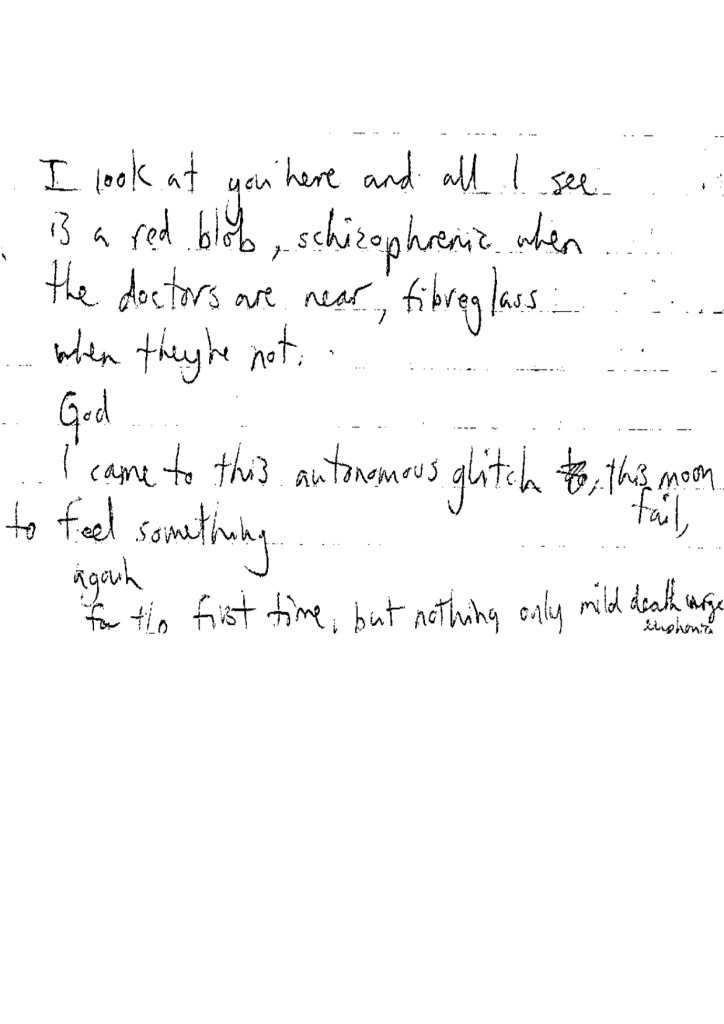 I look at you here and all I see
is a red blob, schizophrenic when
the doctors are near, fibreglass
when they're not.
God
I came to this autonomous glitch, this moon
fail,
to feel something
again
for the first time, but nothing only mild death urge
euphoria